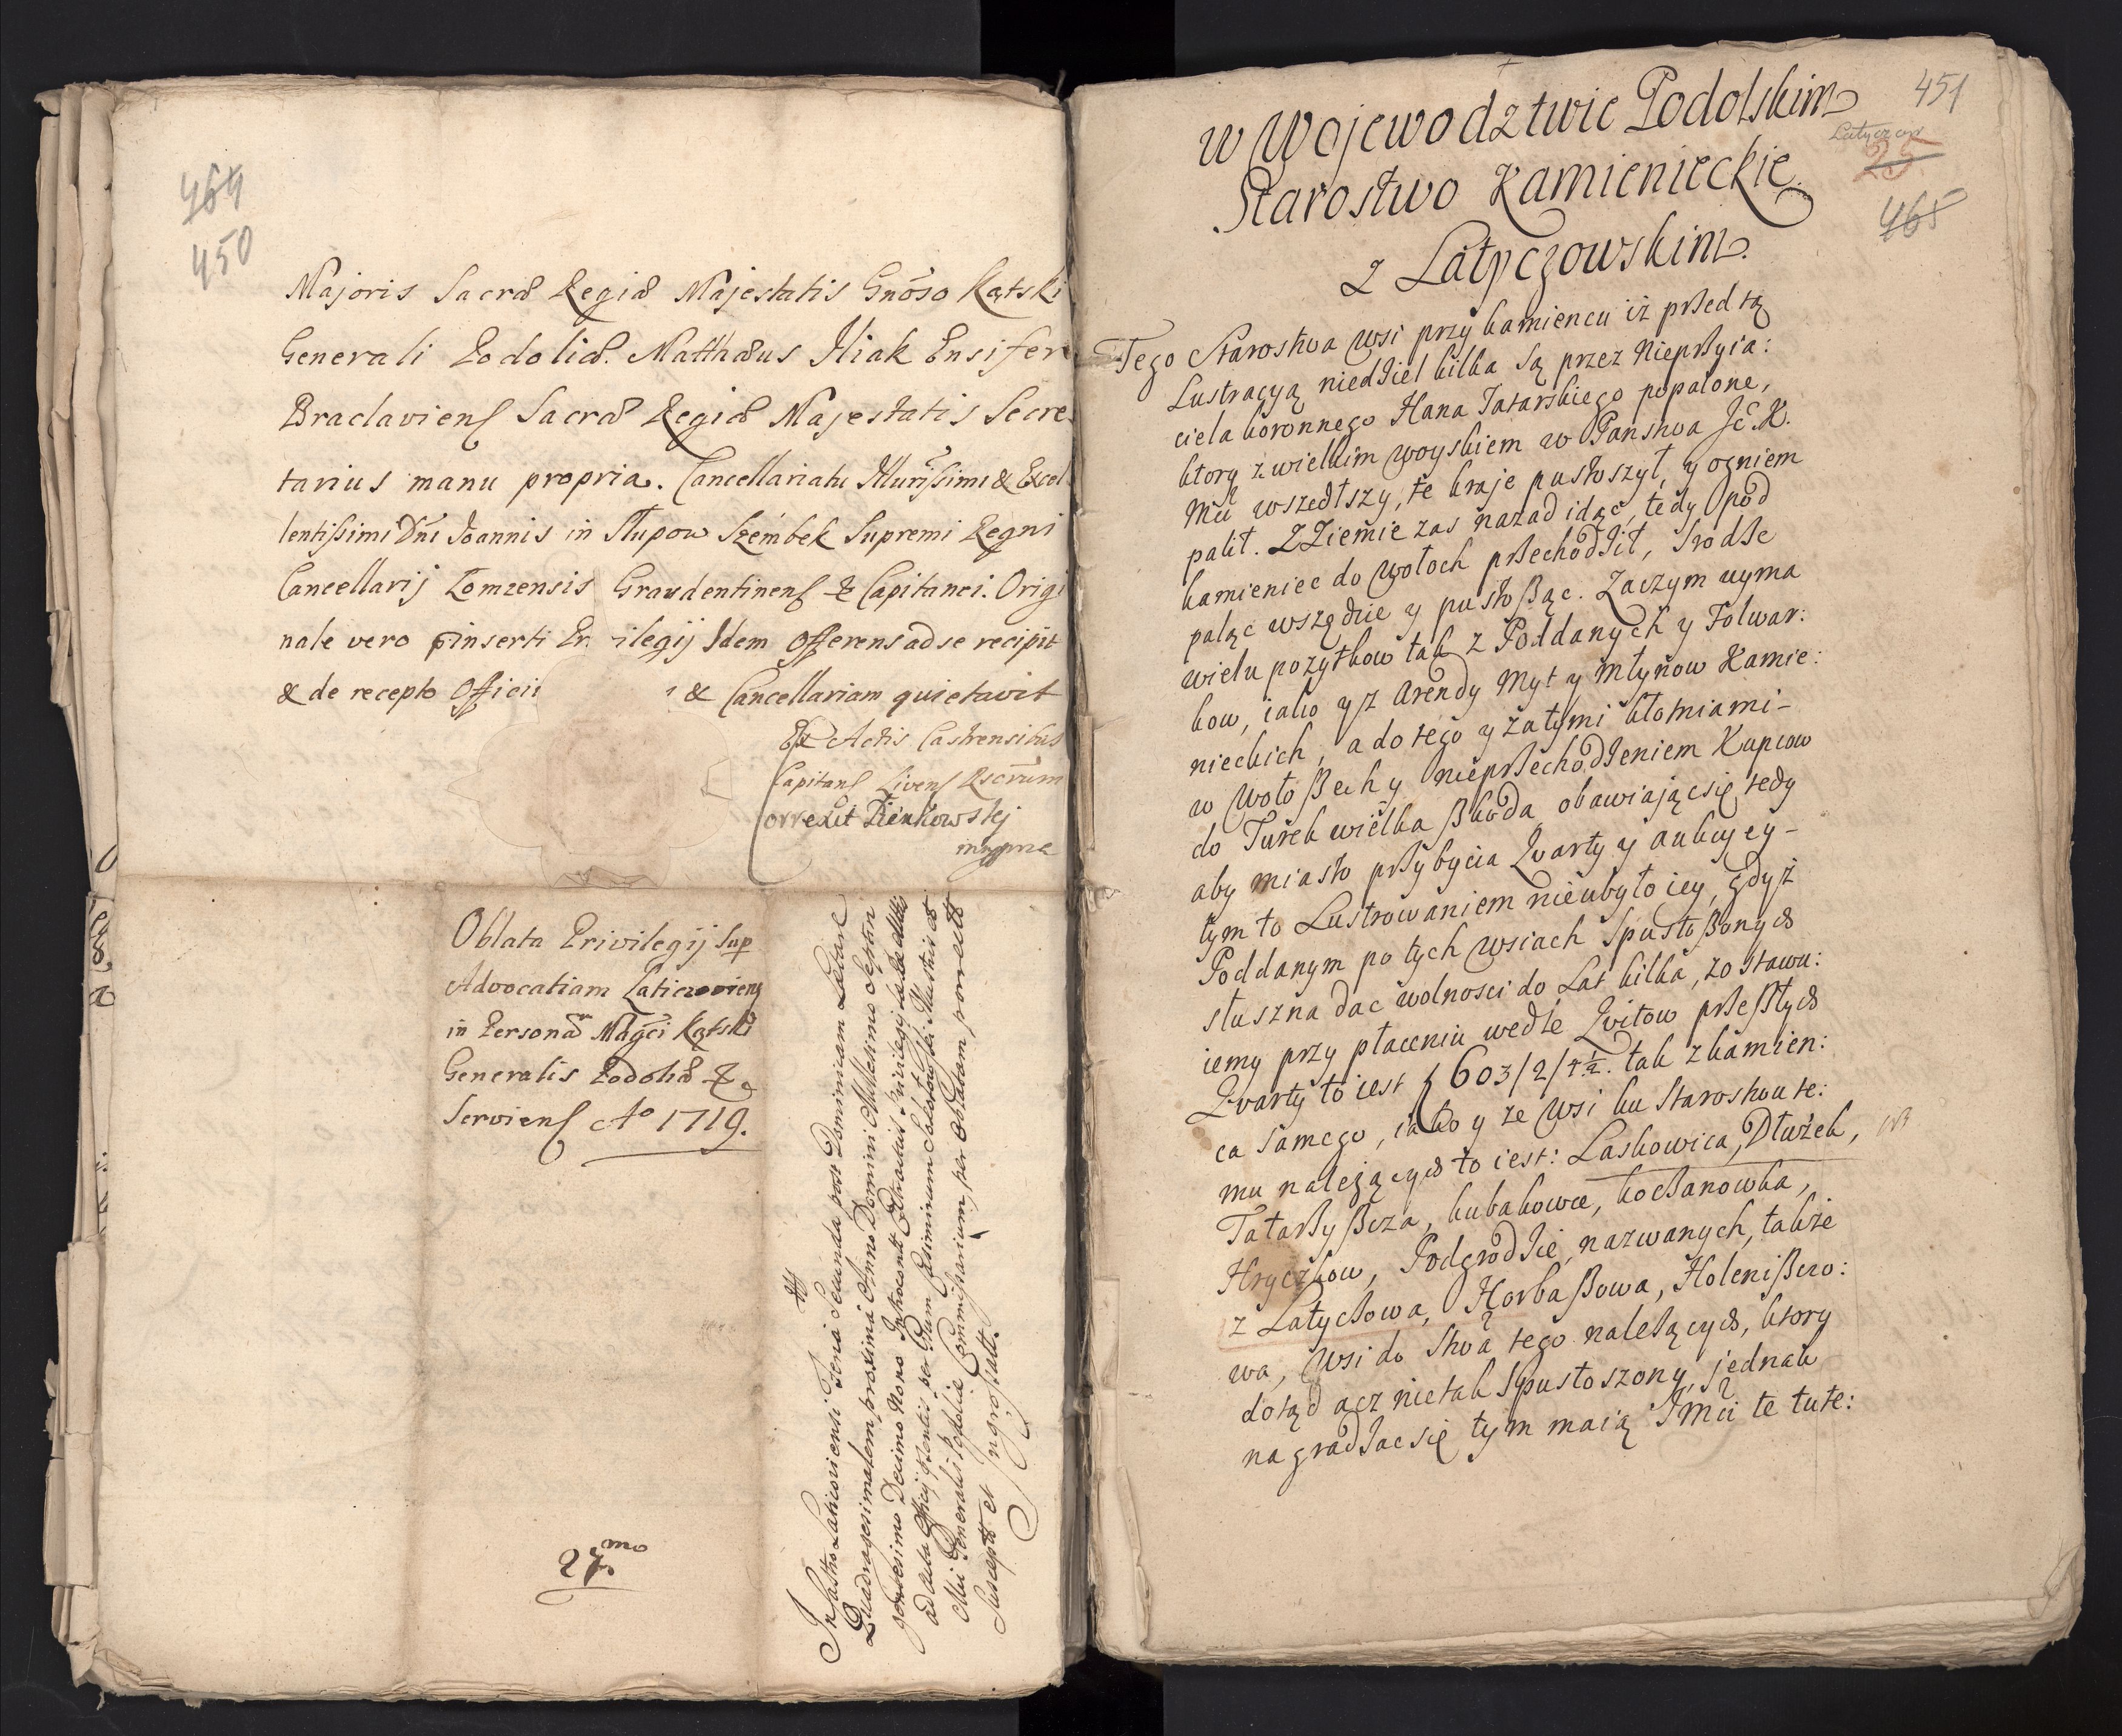 464
450
Majoris Sacræ Regiæ Majestatis Gnoso Kątski
Generali Podoliæ. Matthæus Iliak Ensifer
Braclaviens Sacræ Regiæ Majestatis Secre
tarius manu propria. Cancellariatu Illurissimi & Excel
lentissimi Dni Joannis in Słupow Szembek Supremi Regni
Cancellarij Łomzensis Graudentinens & Capitanei. Origi
nale vero inserti Pr ilegij Idem Offerens ad se recipit
& de recepto Officii & Cancellariam quietavit
Ex Actis Castrensibus
Capitans Livens Rscrum
Correxit Pieńkowskj
mppria
Oblata Privilegij Sup
Advocatiam Laticzoviens
in Personā Magci Kątski
Generalis Podoliæ &
Serviens Ao 1719.
27mo
In Castro Laticoviensi Feria Secunda post Dominicam Lætare
Quadragesimalem proxima Anno Domini Millesimo Septin
gentesimo Decimo Nono Introcontt Extractus Privilegij
ad Acta Officij pntis per Gsum
Mci Generalis Podoliæ Commissarium, per Oblatam porrectt
Susceptt et Ingrossatt.
451
w Wojewodztwie Podolskim
Latyczow
25
Starostwo Kamienieckie
465
z Latyczowskim.
Tego Starostwa wsi przy kamiencu iż przed tą
Lustracyą niedziel kilka są przez Nieprzyia:
ciela koronnego Hana Tatarskiego popalone,
ktory z wielkim woyskiem w Panstwa JE.K.
Mci wszedłszy, te kraje pustoszył, y ogniem
palił. Z Ziemie zas nazad idąc, tedy pod
kamieniec do Wołoch przechodził, srodze
paląc wszędzie y pustoßąc. Zaczym uyma
wielu pozytkow tak z Poddanych y Folwar:
kow, iako y z Arendy Myt y Młynow Kamie:
nieckich, a do tego y za tymi kłotniami-
w Wołoßech y nieprzechodzeniem Kupcow
do Turek wielka ßkoda, obawiając się tedy
aby miasto przybycia Kwarty y aukcyey-
tym to Lustrowaniem nieubyło iey, gdyż
Poddanym po tych wsiach spustoßonych
słuszna dac wolnosci do Lat kilka, zostawu:
iemy przy płaceniu wedle Kwitow przeßłych
Kwarty to iest f 603/2/4½. tak z kamien:
ca samego, iako y ze wsi ku Starostwu te:
mu należących to iest: Laskowica, Dłużek,
Tatarzyßcza, kubakowce, kochanowka,
Hryczkow, Podgrodzie, nazwanych, także
z Latychowa, Horbaßowa, Holenißczo:
wa, wsi do Stwa tego należących, ktory
dotąd acz nietak spustoszony, jednak
nagradzac się tym maią JMci te tute: